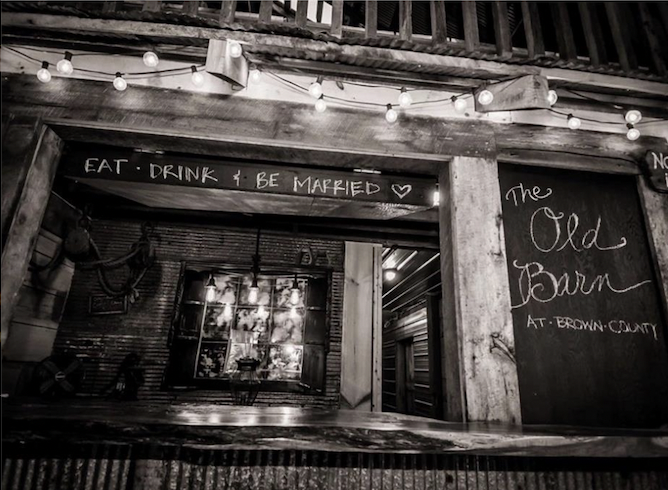 EAT · DRINK & BE MARRIED ♡
The
Old
Barn
AT · BROWN · COUNTY